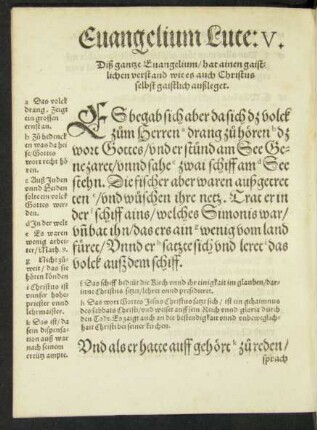 Euangelium Luce: V.
Diß gantze Euangelium/hat ainen gaist
lichen verstand wie es auch Christus
selbst gaistlich außleget.
a Das volck
drang. Zeigt
ein grossen
ernst an.
b Zů bedenck
en was da hei
sse/Gottis
wort nicht
hören.
c Auß Juden
vnnd Heiden
solte ein volck
Gottes wer
den.
d In der welt
e Es waren
wenig arbei
ter/Math. 9.
g Nicht zů
weit/das sie
hören künden
f Christus ist
vnnser hohe
priester vnnd
lehrmaister.
k Das ist/da
sein dispensa
tion auß war
nach seinem
ertütz ampte.
ES begab sich aber da sich dz volck
zům Herren drang zů hören dz
wort Gottes/vnd er stůnd am See Ge
nezaret/vnnd sahe zwai schiff am See
stehn. Die fischer aber waren außgetret
ten/vnd wůschen ihre netz. Trat er in
der schiff ains/welches Simonis war/
vñ bat ihn/das ers ain wenig vom land
füret/Vnnd er satzte sich vnd leret das
volck auß dem schiff.
f Das schiff bedeüt die Kirch vnnd ihr einigkeit im glauben/dar
inne Christus sitzet/lehret vnnd presidieret.
h Das wort Gottes Jesus Christus setzt sich/ist ein gehaimnus
des sabbaths Christi/vnd weiset auff sein Reich vnnd gloria durch
den Todt. Es zaigt auch an die bestendigkait vnnd vnbeweglich
hait Christi bei seiner kirchen.
Vnd als er hatte auff gehört zů reden/
sprach